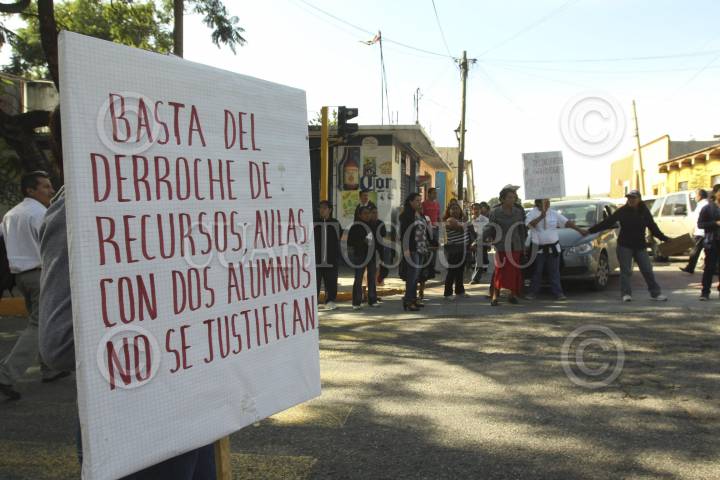 BASTA DEL
DERROCHE DE
RECURSOS, AULAS
CON DOS ALUMNOS
NO SE JUSTIFICAN
CUARTOSCURO